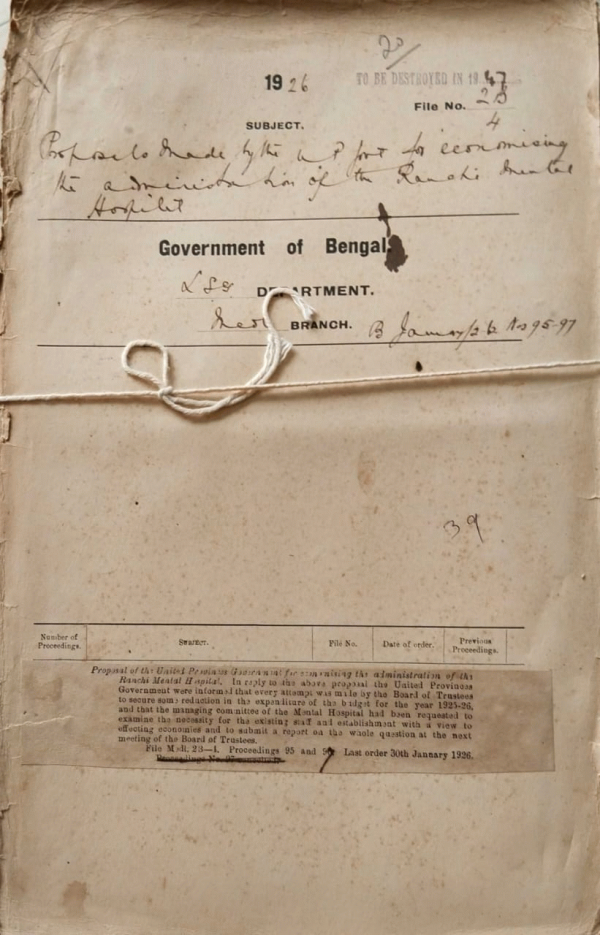 20/
1926
TO BE DESTROYED IN 1947
File No. 2B
4
SUBJECT.
Proposals made by the U P Govt for economising
the administration of the Ranchi Mental
Hospital
Government of Bengal.
LSG DEPARTMENT.
Medl BRANCH. B January/26 Nos 95-97
39
Number of Proceedings. SUBJECT. File No. Date of order. Previous Proceedings.
Proposal of the United Provinces Government for economising the administration of the
Ranchi Mental Hospital. In reply to the above proposal the United Provinces
Government were informed that every attempt was made by the Board of Trustees
to secure some reduction in the expenditure of the budget for the year 1925-26,
and that the managing committee of the Mental Hospital had been requested to
examine the necessity for the existing staff and establishment with a view to
effecting economies and to submit a report on the whole question at the next
meeting of the Board of Trustees.
File Medl. 2B—4. Proceedings 95 and Last order 30th January 1926.